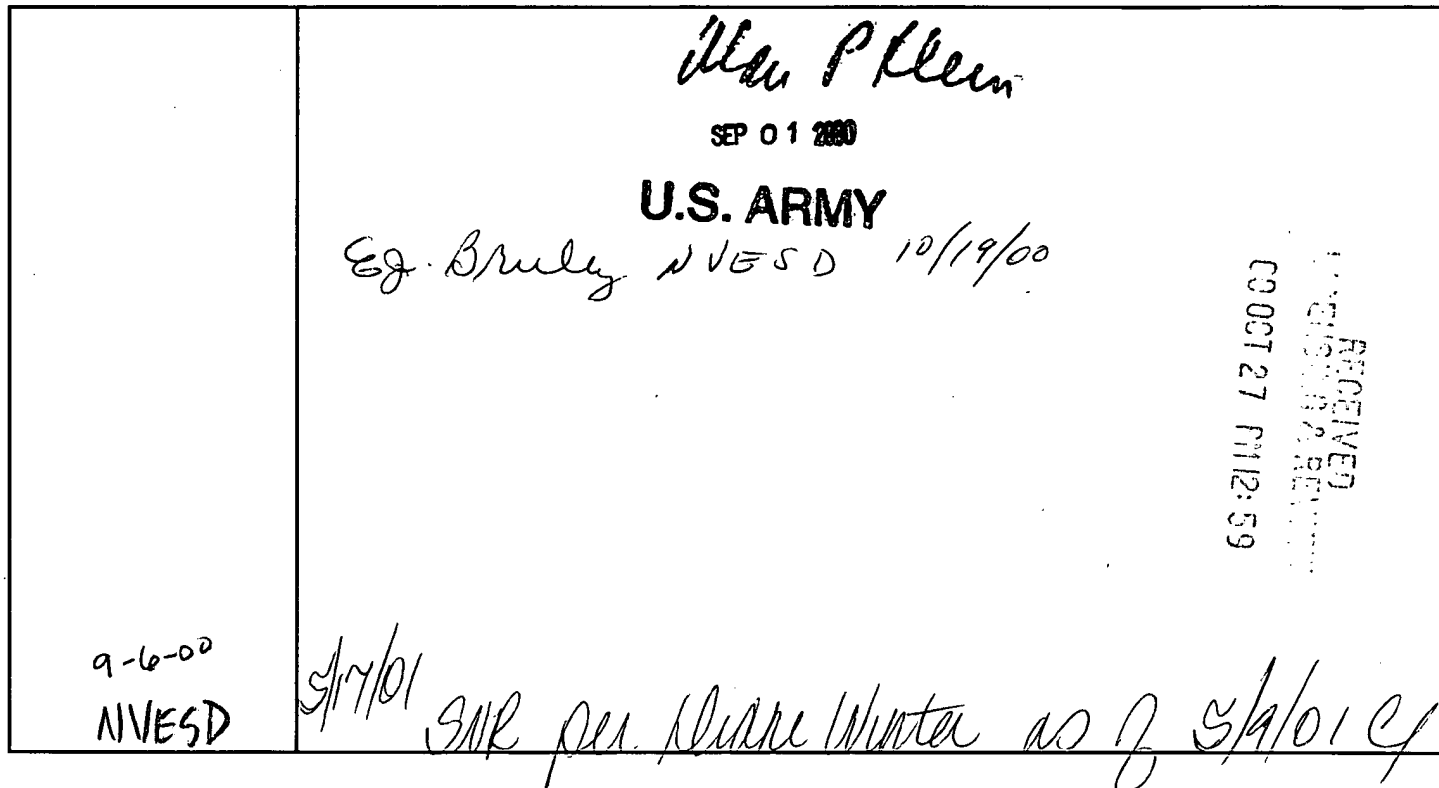 Alan P Klein
SEP 01 2000
U.S. ARMY
EJ. Bruley NVESD 10/19/00
RECEIVED
00 OCT 27 PM 12:59
9-6-00
NVESD
5/17/01 SNR per. Diane Winter as of 5/9/01 Cy